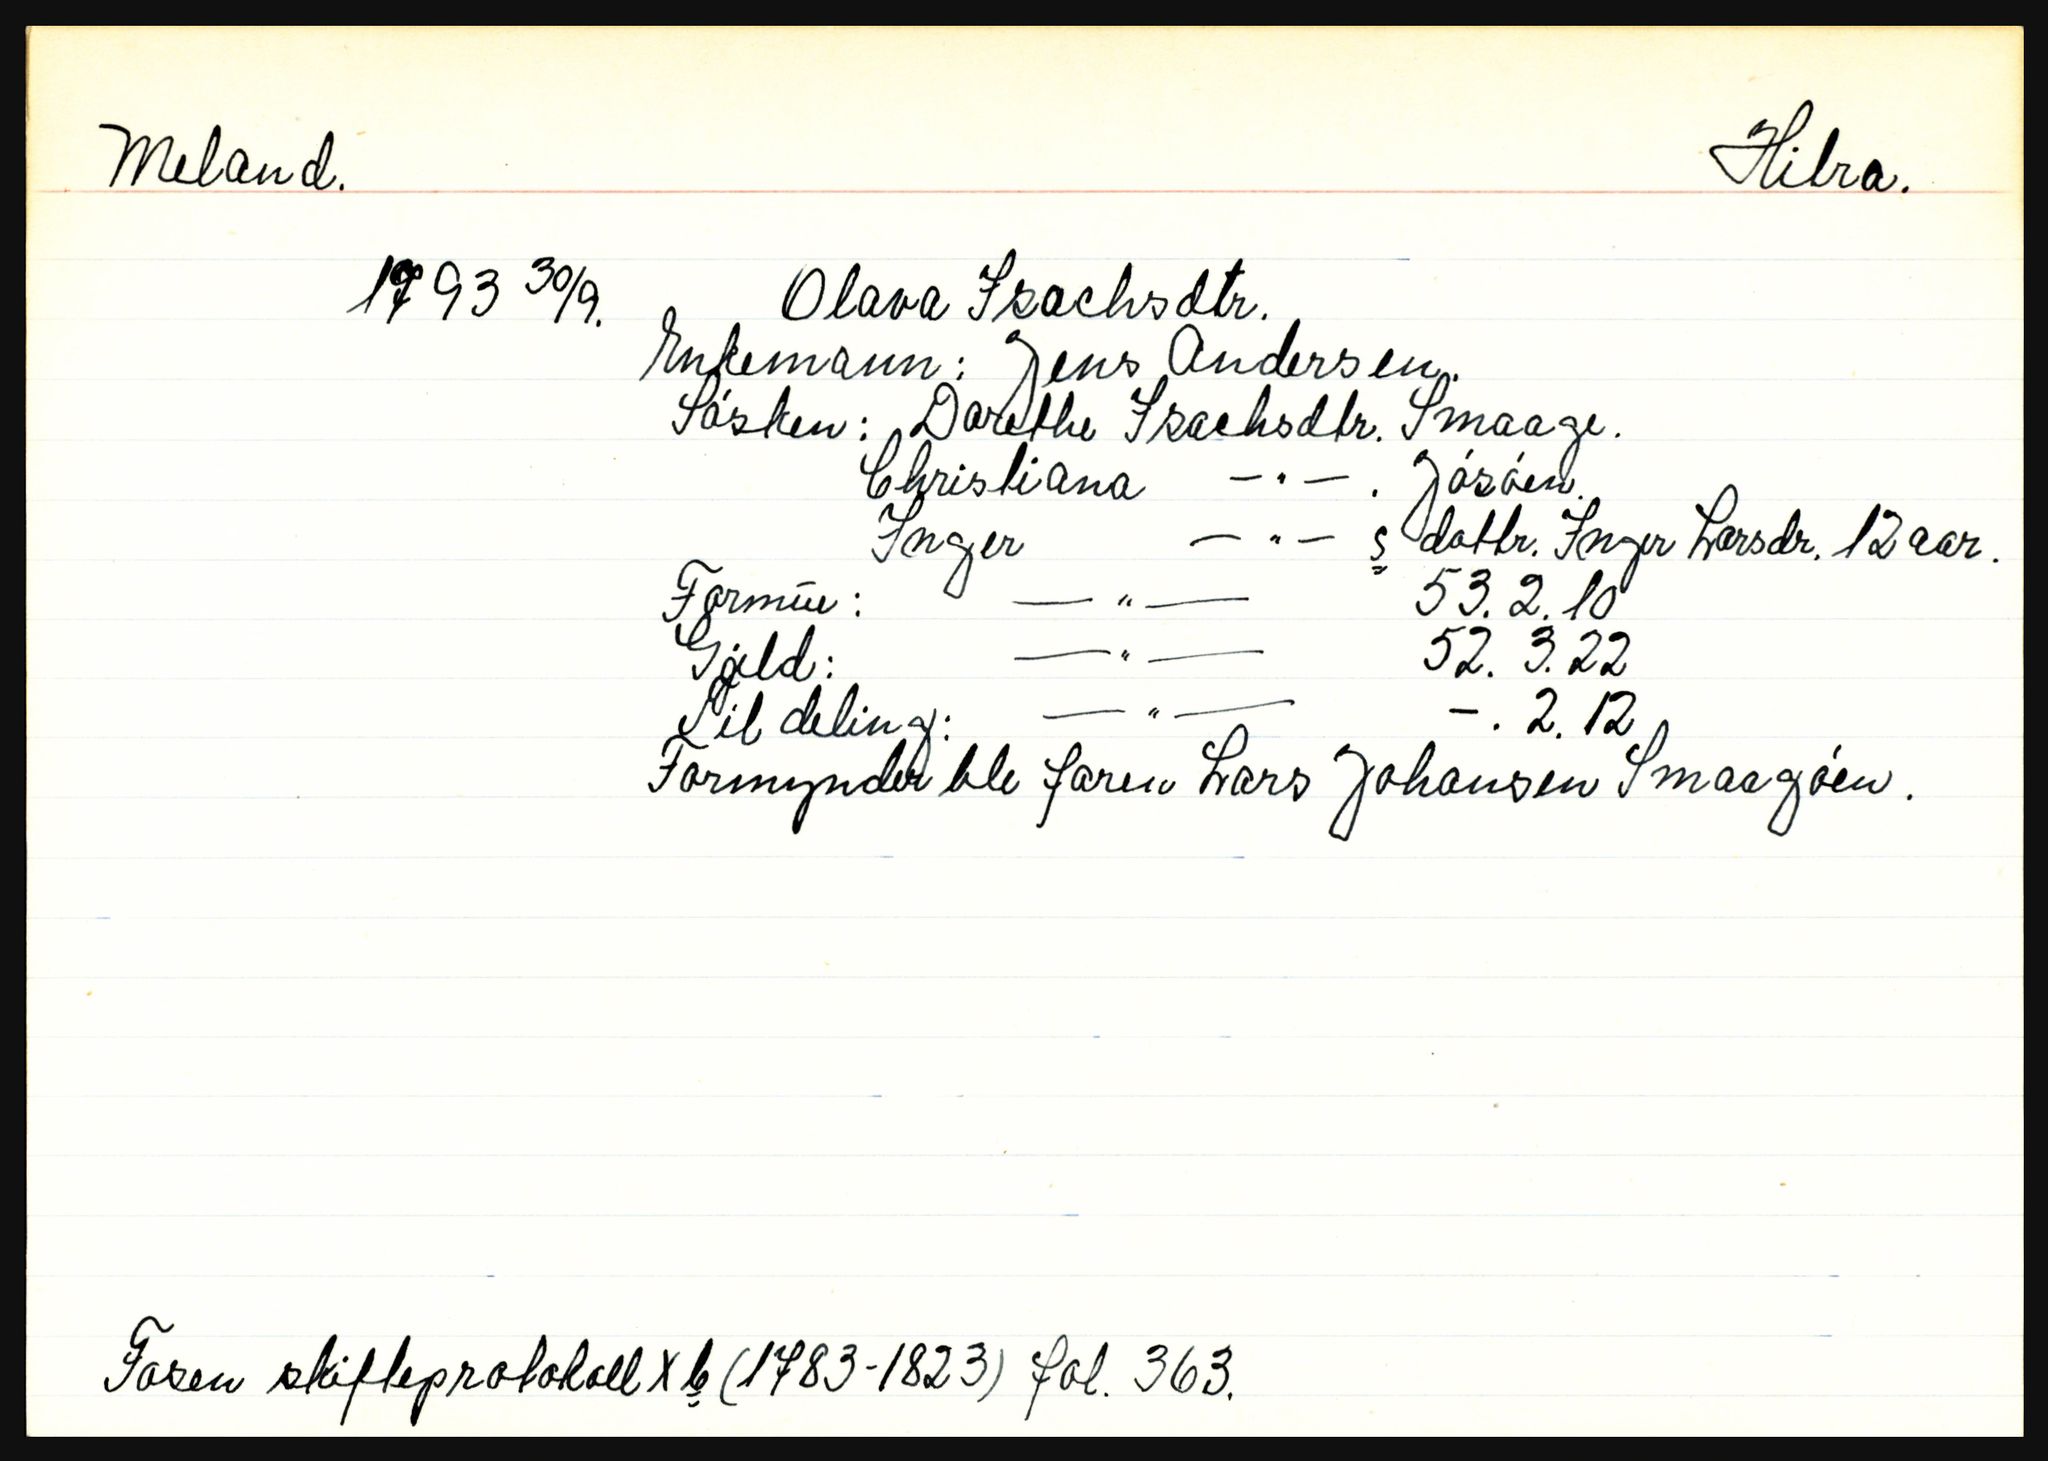 Meland. Hitra.
1793 30/9. Olava Isachsdtr.
Enkemann: Jens Andersen.
Søsken: Dorethe Isachsdtr. Smaage.
Christiana — " — . Jøsøen.
Inger — " — s dattr. Inger Larsdr. 12 aar.
Formue: — " — 53. 2. 10
Gjeld: — " — 52. 3. 22
Til deling: — " — -. 2. 12
Formynder ble faren Lars Johansen Smaagøen.
Fosen skifteprotokoll X b (1783-1823) fol. 363.